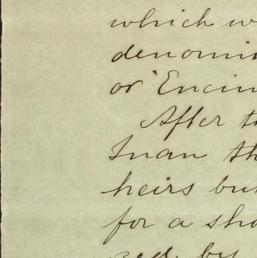 which w
denomin
or "Encin
After th
Juan th
heirs bu
for a sho
by